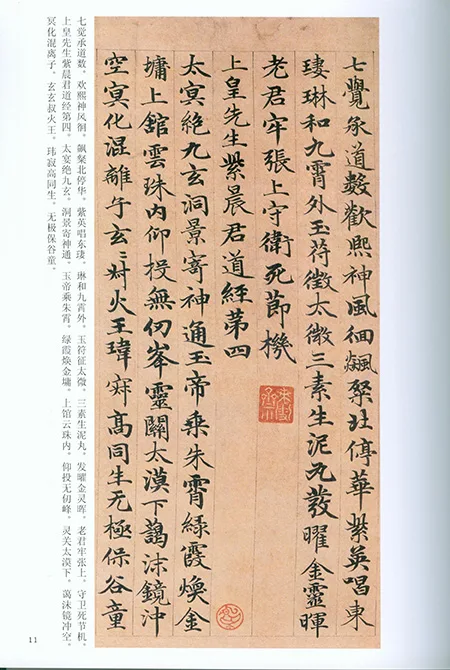 七覺承道數歡熙神風徊飆粲北停華紫英唱東
瑓琳和九霄外玉苻徵太微三素生泥丸發曜金靈暉
老君牢張上守衛死節機
上皇先生紫晨君道經第四
太冥絶九玄洞景寄神通玉帝乗朱霄緑霞煥金
墉上舘雲珠内仰投無仞峯靈關太漠下藹沫鏡沖
空冥化混離子玄玄叔火王瑋寂髙同生无極保谷童
七觉承道数。欢熙神风徊。飙粲北停华。紫英唱东瑓。琳和九霄外。玉符征太微。三素生泥丸。发曜金灵晖。老君牢张上。守卫死节机。
上皇先生紫晨君道经第四。太冥绝九玄。洞景寄神通。玉帝乘朱霄。绿霞焕金墉。上馆云珠内。仰投无仞峰。灵关太漠下。蔼沫镜冲空。
冥化混离子。玄玄叔火王。玮寂高同生。无极保谷童。
11